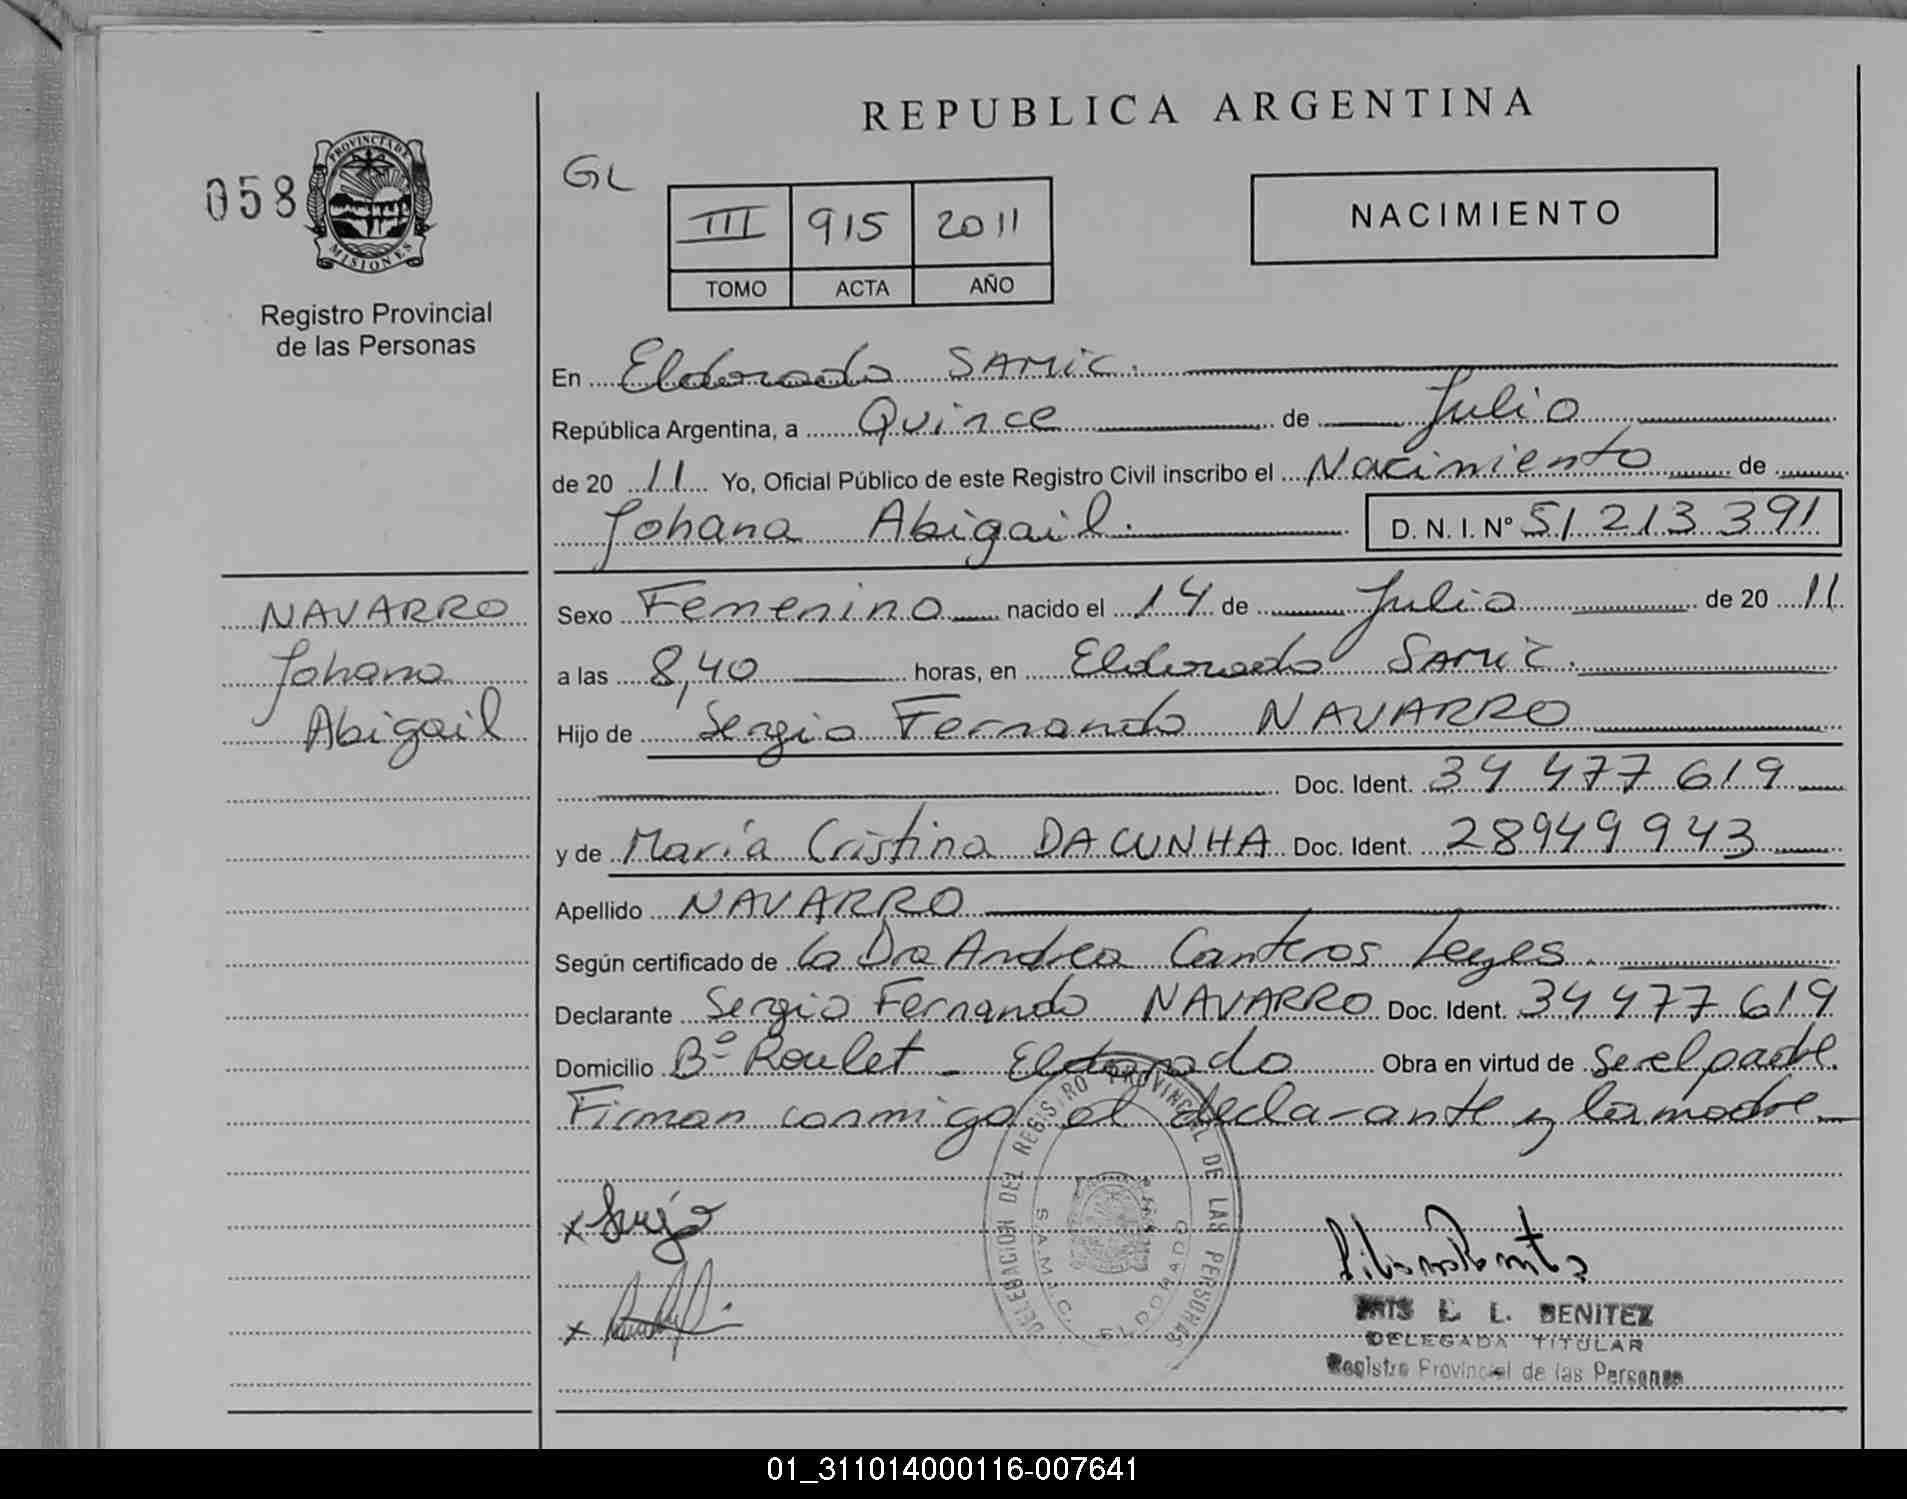 REPUBLICA ARGENTINA
058
PROVINCIA DE
MISIONES
Registro Provincial
de las Personas
GL
III 915 2011
TOMO ACTA AÑO
NACIMIENTO
En Eldorado SAMIC.
República Argentina, a Quince de Julio
de 20 11 Yo, Oficial Público de este Registro Civil inscribo el Nacimiento de
Johana Abigail. D. N. I. Nº 51 213 391
NAVARRO
Johana
Abigail
Sexo Femenino nacido el 14 de Julio de 20 11
a las 8,40 horas, en Eldorado SAMIC.
Hijo de Sergio Fernando NAVARRO
Doc. Ident. 34 477 619
y de María Cristina DA CUNHA Doc. Ident. 28949 943
Apellido NAVARRO
Según certificado de la Dra Andrea Canteros Leyes.
Declarante Sergio Fernando NAVARRO Doc. Ident. 34 477 619
Domicilio Bº Roulet - Eldorado Obra en virtud de ser el padre.
Firman conmigo el declarante y la madre
DELEGACION DEL REGISTRO PROVINCIAL DE LAS PERSONAS
S.A.M.I.C. ELDORADO
x
x
L. BENITEZ
DELEGADA TITULAR
Registro Provincial de las Personas
01_311014000116-007641